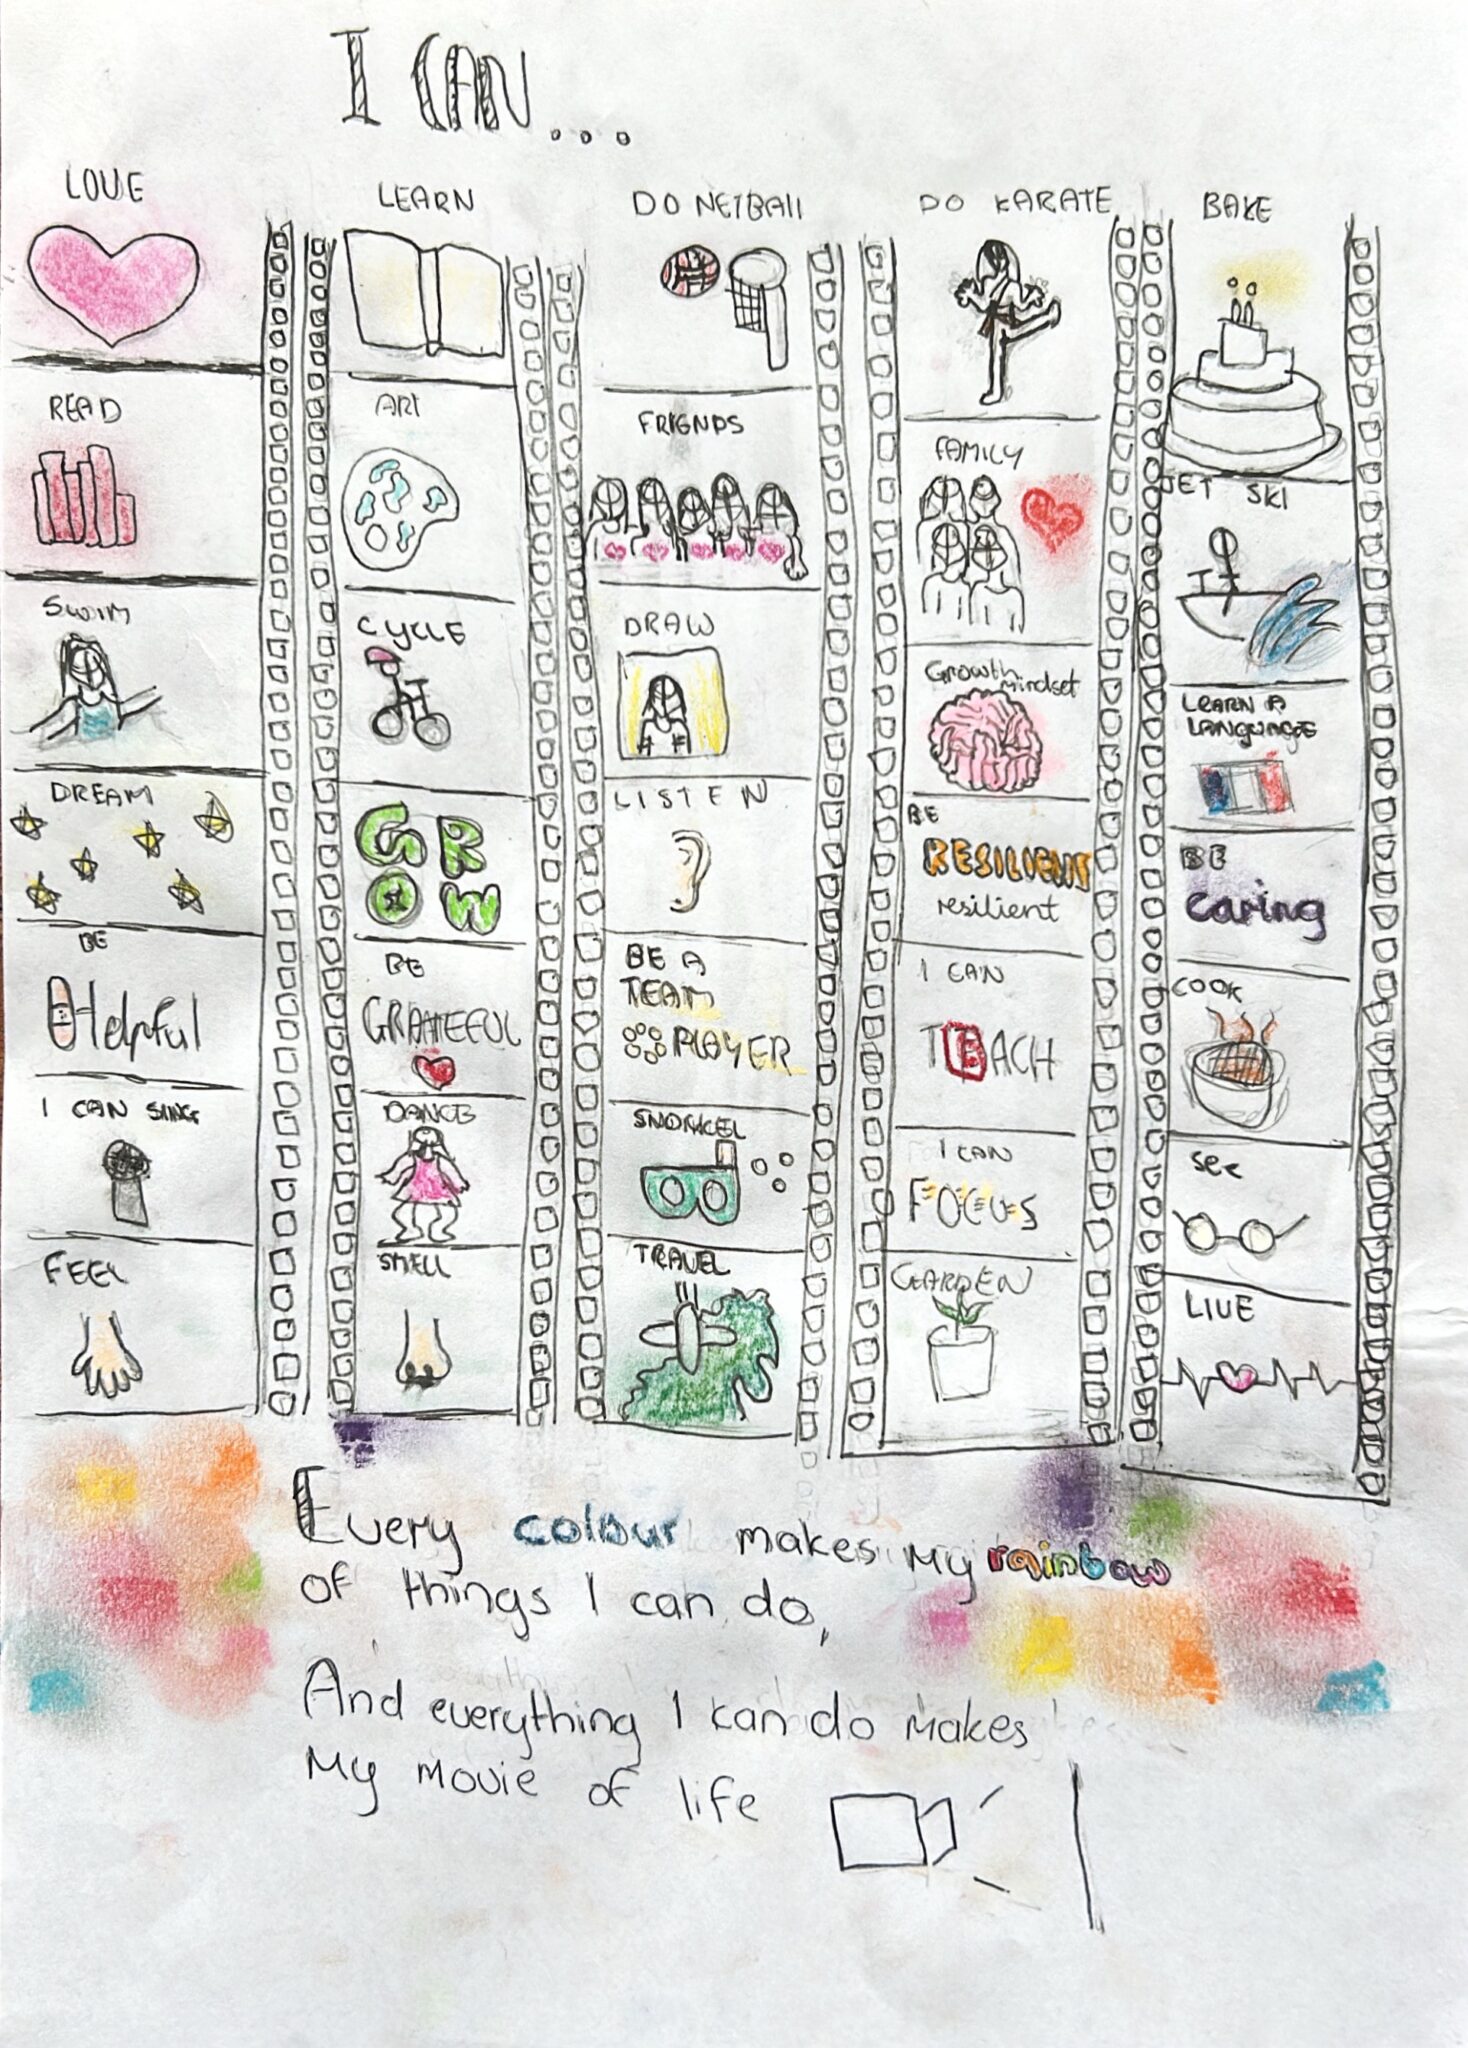 I CAN...
LOVE
READ
SWIM
DREAM
BE
Helpful
I CAN SING
FEEL
LEARN
ART
CYCLE
GROW
BE
GRATEFUL
DANCE
SMELL
DO NETBALL
FRIENDS
DRAW
LISTEN
BE A
TEAM
PLAYER
SNORKEL
TRAVEL
DO KARATE
FAMILY
Growth
mindset
BE
RESILIENT
resilient
I CAN
TEACH
I CAN
FOCUS
GARDEN
BAKE
JET SKI
LEARN A
LANGUAGE
BE
caring
COOK
See
LIVE
Every colour makes my rainbow
of things I can do,
And everything I can do makes
My movie of life